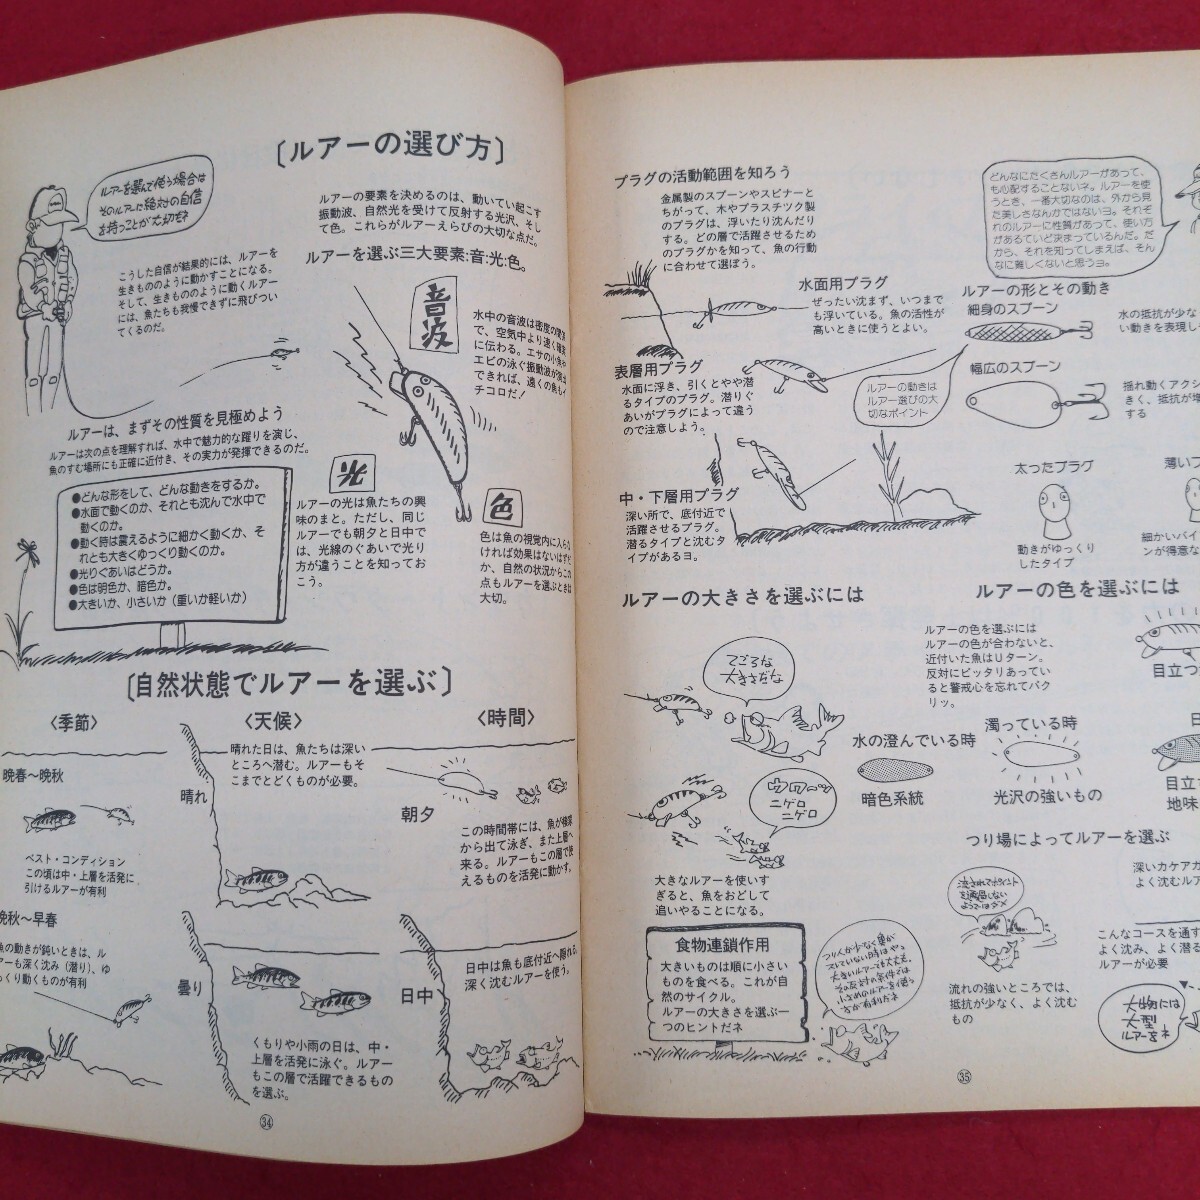 〔ルアーの選び方〕
ルアーを選んで使う場合は
そのルアーに絶対の自信
を持つことが大切だネ
こうした自信が結果的には、ルアーを
生きもののように動かすことになる。
そして、生きもののように動くルアー
には、魚たちも我慢できずに飛びつい
てくるのだ。
ルアーの要素を決めるのは、動いてい起こす
振動波、自然光を受けて反射する光沢、そし
て色。これらがルアーえらびの大切な点だ。
ルアーを選ぶ三大要素:音:光:色。
音波
水中の音波は密度の
で、空気中より速く確実
に伝わる。エサの小魚や
エビの泳ぐ振動波が演出
できれば、遠くの魚もイ
チコロだ!
ルアーは、まずその性質を見極めよう
ルアーは次の点を理解すれば、水中で魅力的な躍りを演じ、
魚のすむ場所にも正確に近付き、その実力が発揮できるのだ。
●どんな形をして、どんな動きをするか。
●水面で動くのか、それとも沈んで水中で
動くのか。
●動く時は震えるように細かく動くか、そ
れとも大きくゆっくり動くのか。
●光りぐあいはどうか。
●色は明色か、暗色か。
●大きいか、小さいか(重いか軽いか)
光
ルアーの光は魚たちの興
味のまと。ただし、同じ
ルアーでも朝夕と日中で
は、光線のぐあいで光り
方が違うことを知ってお
こう。
色
色は魚の視覚内に入らな
ければ効果はないはずだ
か、自然の状況からこの
点もルアーを選ぶときは
大切。
〔自然状態でルアーを選ぶ〕
〈季節〉
晩春〜晩秋
ベスト・コンディション
この頃は中・上層を活発に
引けるルアーが有利
晩秋〜早春
魚の動きが鈍いときは、ル
アーも深く沈み(潜り)、ゆ
っくり動くものが有利
〈天候〉
晴れた日は、魚たちは深い
ところへ潜む。ルアーもそ
こまでとどくものが必要。
晴れ
曇り
くもりや小雨の日は、中・
上層を活発に泳ぐ。ルアー
もこの層で活躍できるもの
を選ぶ。
〈時間〉
朝夕
この時間帯には、魚が棲家
から出て泳ぎ、また上層へ
来る。ルアーもこの層で使
えるものを活発に動かす。
日中は魚も底付近へ隠れる。
深く沈むルアーを使う。
日中
34
プラグの活動範囲を知ろう
金属製のスプーンやスピナーと
ちがって、木やプラスチック製
のプラグは、浮いたり沈んだり
する。どの層で活躍させるため
のプラグかを知って、魚の行動
に合わせて選ぼう。
水面用プラグ
ぜったい沈まず、いつまで
も浮いている。魚の活性が
高いときに使うとよい。
表層用プラグ
水面に浮き、引くとやや潜
るタイプのプラグ。潜りぐ
あいがプラグによって違う
ので注意しよう。
中・下層用プラグ
深い所で、底付近で
活躍させるプラグ。
潜るタイプと沈むタ
イプがあるヨ。
どんなにたくさんルアーがあって、
も心配することないネ。ルアーを使
うとき、一番大切なのは、外から見
た美しさなんかではないヨ。それぞ
れのルアーに性質があって、使い方
があるていど決まっているんだ。だ
から、それを知ってしまえば、そん
なに難しくないと思うヨ。
ルアーの形とその動き
細身のスプーン
水の抵抗が少な
い動きを表現し
幅広のスプーン
揺れ動くアクシ
きく、抵抗が増
する
ルアーの動きは
ルアー選びの大
切なポイント
太ったプラグ
動きがゆっくり
したタイプ
薄いプ
細かいバイ
ンが得意な
ルアーの大きさを選ぶには
てごろな
大きさだな
ウワーッ
ニゲロ
ニゲロ
大きなルアーを使いす
ぎると、魚をおどして
追いやることになる。
食物連鎖作用
大きいものは順に小さい
ものを食べる。これが自
然のサイクル。
ルアーの大きさを選ぶ一
つのヒントだネ
つり人が少なく魚が
スレていない時はやゝ
大きいルアーでも大丈夫。
その反対の条件では
小さめのルアーを使う
方が有利だネ
ルアーの色を選ぶには
ルアーの色を選ぶには
ルアーの色が合わないと、
近付いた魚はUターン。
反対にピッタリあってい
ると警戒心を忘れてパク
リッ。
目立つ
水の澄んでいる時
暗色系統
濁っている時
光沢の強いもの
目立つ
地味
つり場によってルアーを選ぶ
流されてポイント
を通過しない
ようではダメ
流れの強いところでは、
抵抗が少なく、よく沈む
もの
深いカケアガ
よく沈むルア
こんなコースを通す
よく沈み、よく潜る
ルアーが必要
大物には
大型
ルアーをネ
35